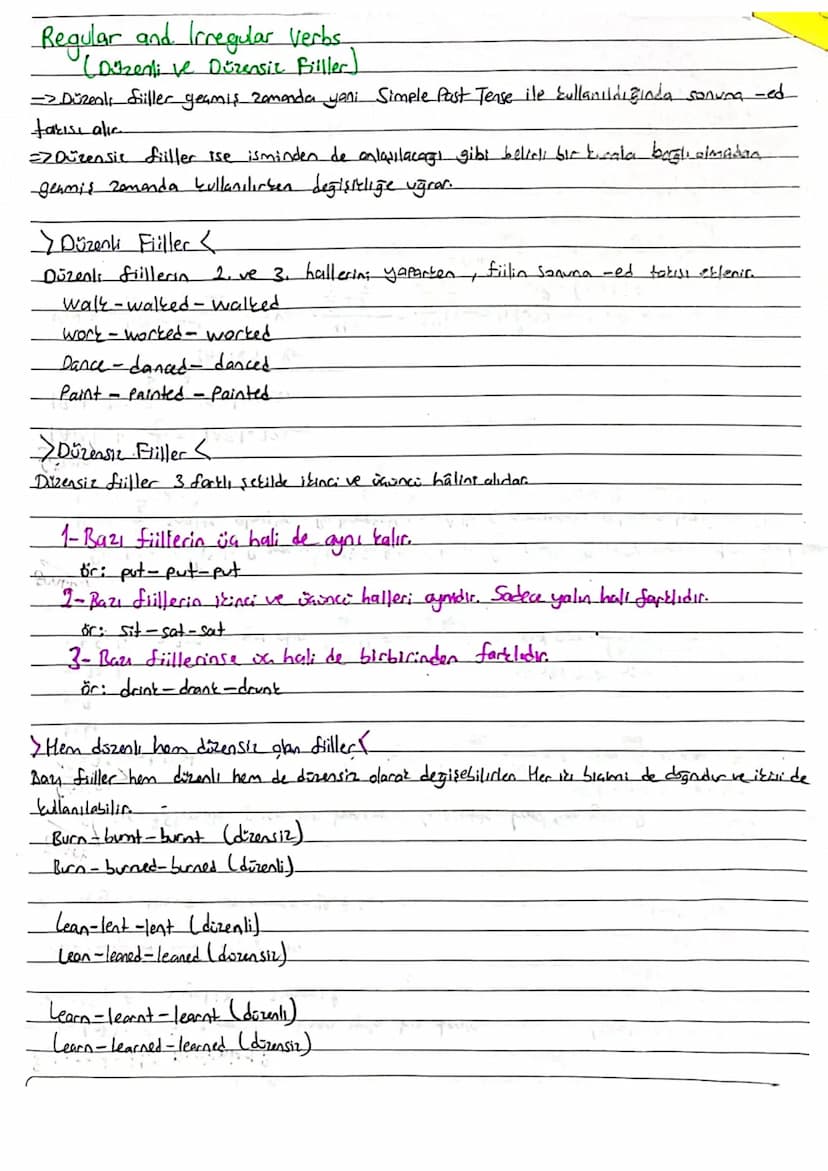 Regular and Irregular Verbs
(Düzenli ve Düzensiz Fiiller)
=> Düzenli fiiller geçmiş zamanda yani Simple Past Tense ile kullanıldığında sonuna -ed
takısı alır.
=> Düzensiz fiiller ise isminden de anlaşılacağı gibi belirli bir kurala bağlı olmadan
geçmiş zamanda kullanılırken değişikliğe uğrar.
> Düzenli Fiiller <
Düzenli fiillerin 2. ve 3. hallerini yaparken, fiilin sonuna -ed takısı eklenir.
Walk - walked - walked
Work - worked - worked
Dance - danced - danced
Paint - Painted - Painted
> Düzensiz Fiiller <
Düzensiz fiiller 3 farklı şekilde ikinci ve üçüncü hâlini alırlar.
1- Bazı fiillerin üç hali de aynı kalır.
ör: put - put - put
2- Bazı fiillerin ikinci ve üçüncü halleri aynıdır. Sadece yalın hali farklıdır.
ör: sit - sat - sat
3- Bazı fiillerinse üç hali de birbirinden farklıdır.
ör: drink - drank - drunk
> Hem düzenli hem düzensiz olan fiiller <
Bazı fiiller hem düzenli hem de düzensiz olarak değişebilirler. Her iki biçimi de doğrudur ve ikisi de
kullanılabilir.
Burn - burnt - burnt (düzensiz)
Burn - burned - burned (düzenli)
Lean - lent - lent (düzenli)
Lean - leaned - leaned (düzensiz)
Learn - learnt - learnt (düzenli)
Learn - learned - learned (düzensiz)